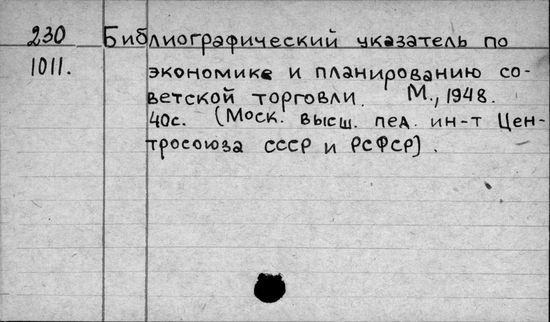 230 Библиографический указатель по
1011. экономике и планированию со-
ветской торговли. М., 1948.
40с. (Моск. высш. пед. ин-т Цен-
тросоюза СССР и РСФСР).